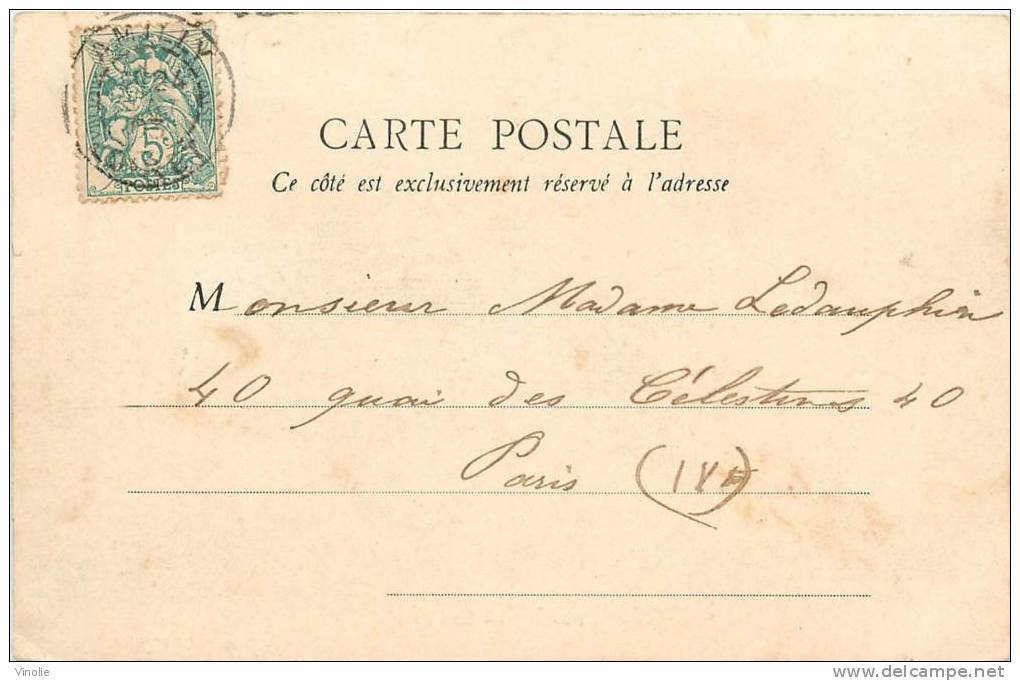 5
POSTES
CARTE POSTALE
Ce côté est exclusivement réservé à l'adresse
Monsieur Madame Ledauphin
40 quai des Célestins 40
Paris (IVe)
Vinolie
delcampe.net